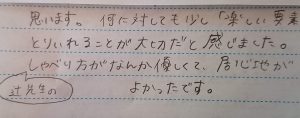 思います。何に対しても少し「楽しい要素
とりいれることが大切だと感じました。
しゃべり方がなんか優しくて、居心地が
辻先生の
よかったです。